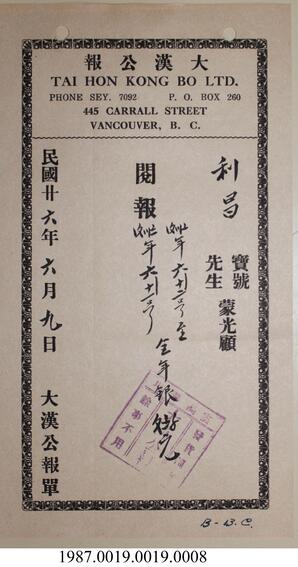 報公漢大
TAI HON KONG BO LTD.
PHONE SEY. 7092 P. O. BOX 260
445 CARRALL STREET
VANCOUVER, B. C.
利昌 寶號
先生 蒙光顧
閱報
年六月十二号至
年六月十二号
全年銀
民國廿六年六月九日 大漢公報單
餘事不用
B-B.C.
1987.0019.0019.0008